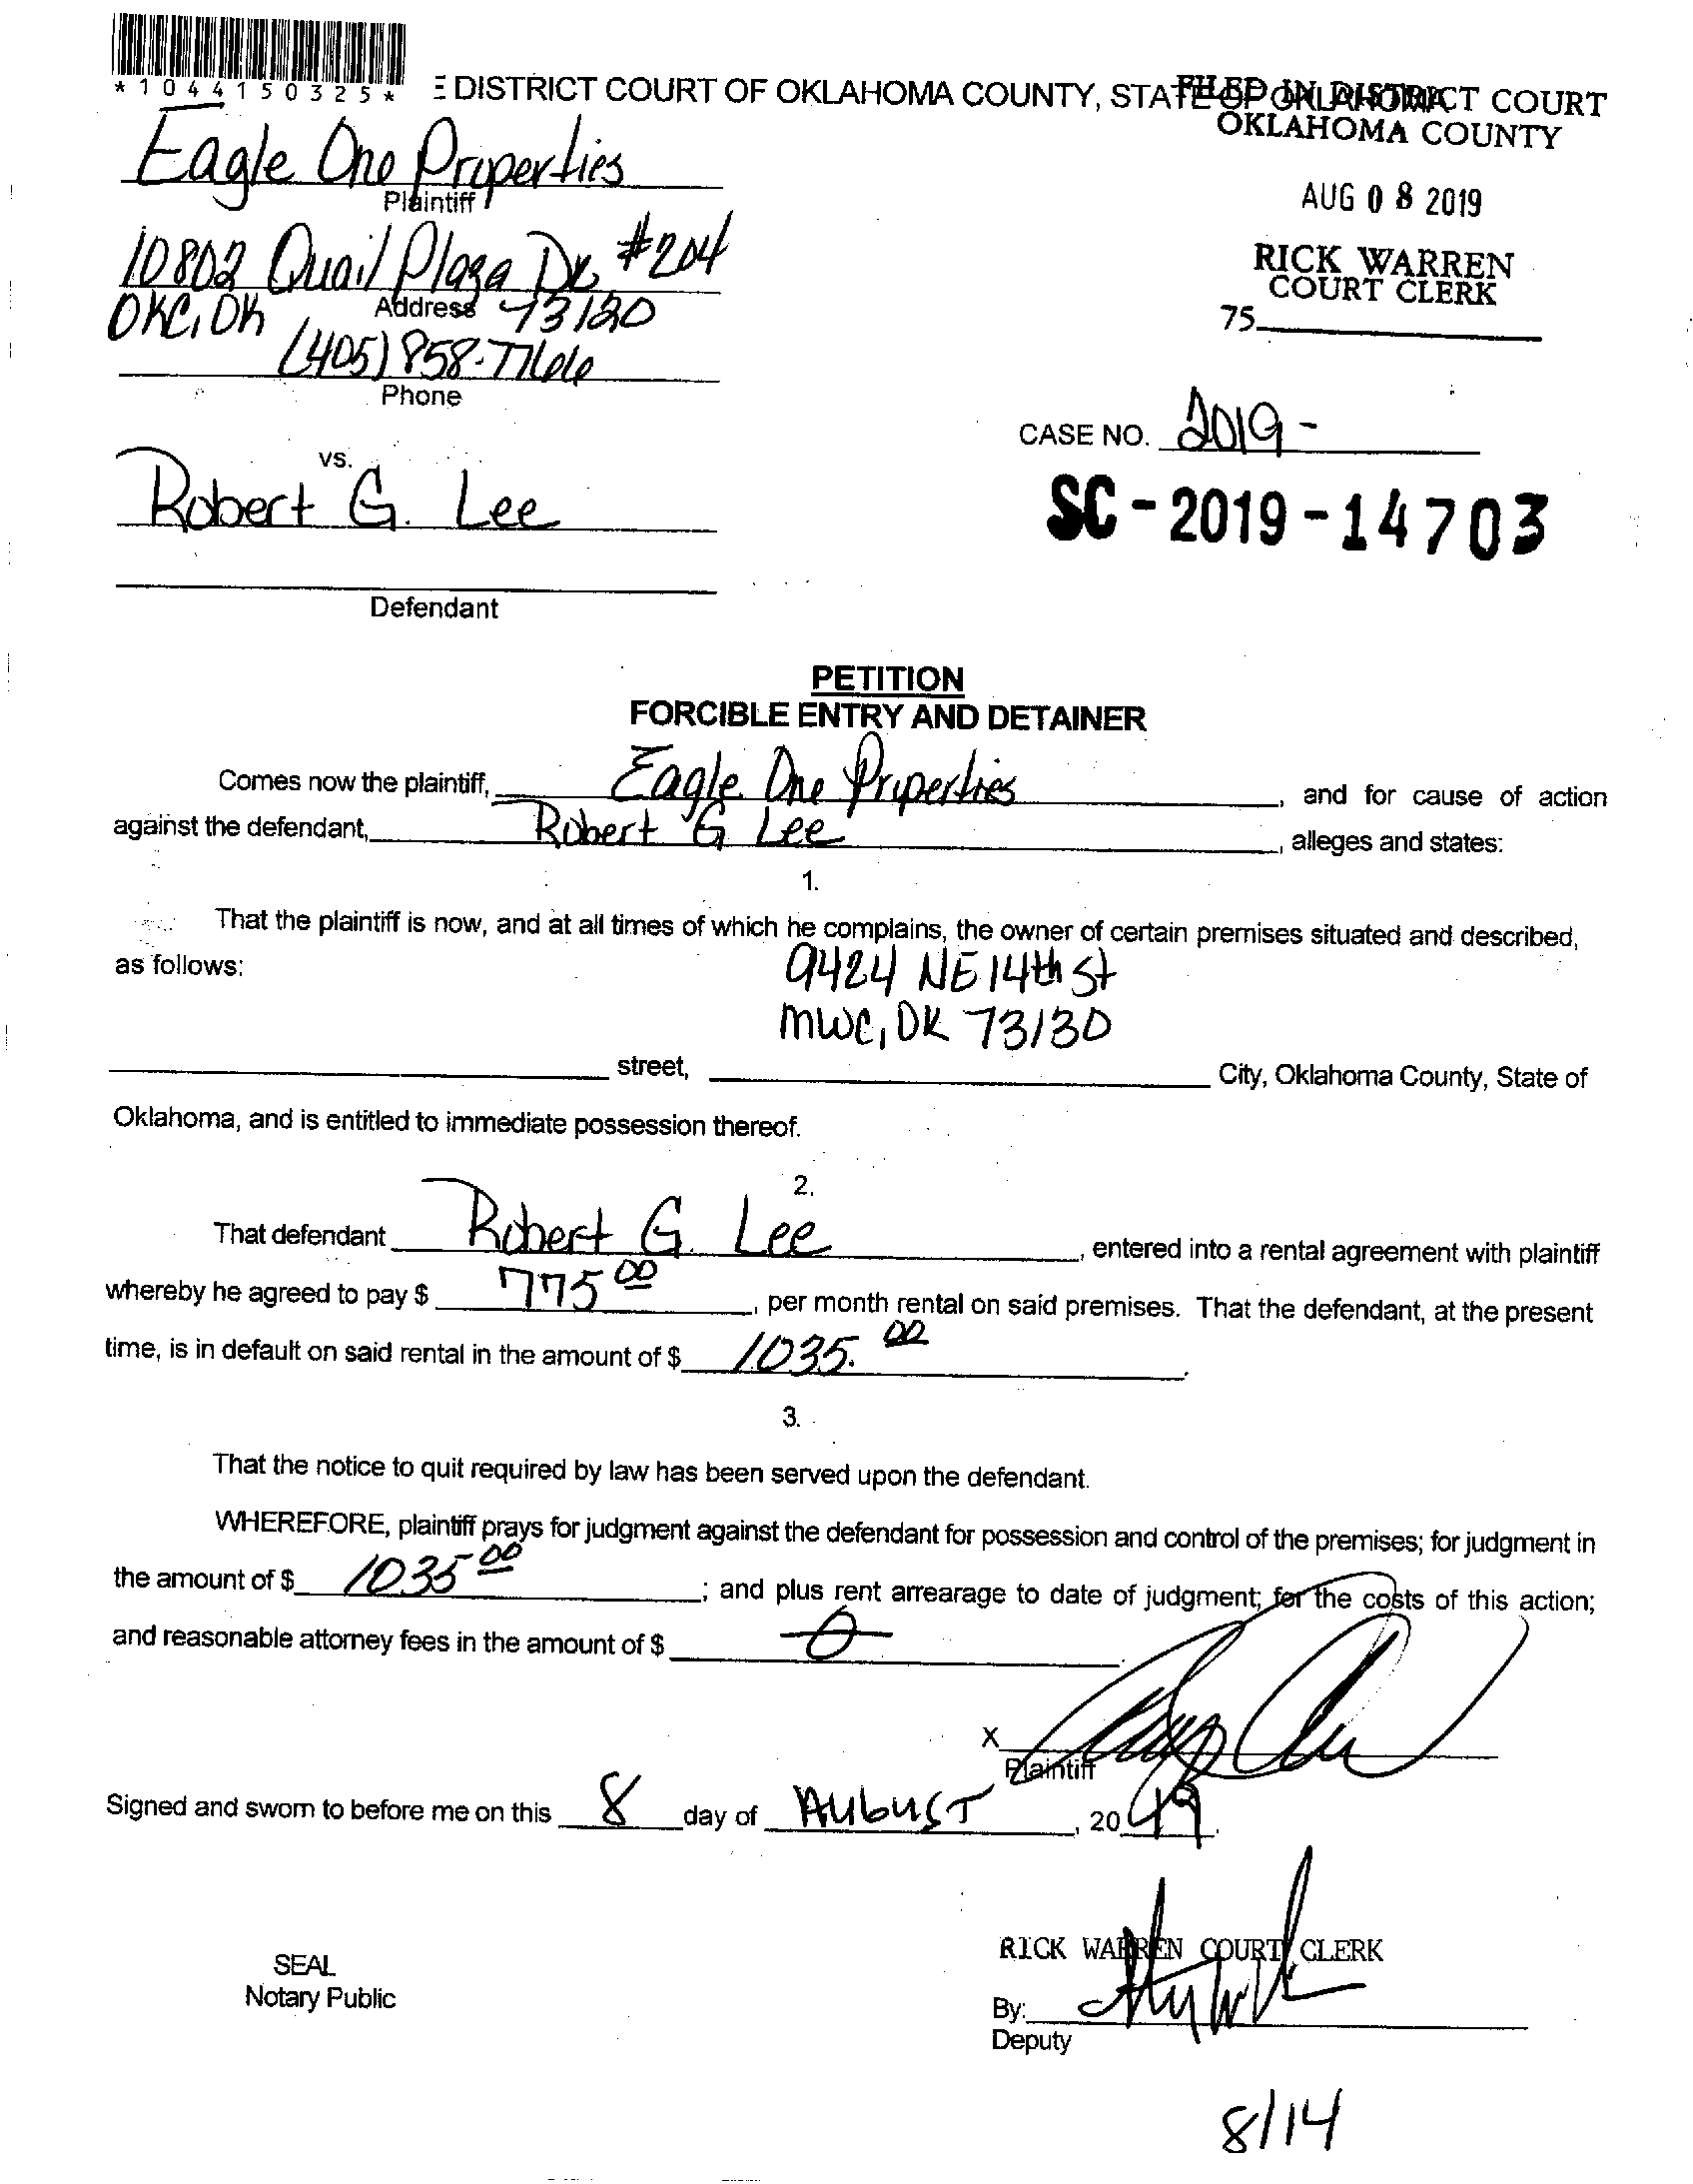 *1044150325*
DISTRICT COURT OF OKLAHOMA COUNTY, STATE OF OKLAHOMA
FILED IN DISTRICT COURT
OKLAHOMA COUNTY
Eagle One Properties
Plaintiff
AUG 08 2019
10802 Quail Plaza Dr. #204
Address
OKC, OK 73120
RICK WARREN
COURT CLERK
75
(405) 858-7766
Phone
CASE NO. 2019-
vs.
Robert G. Lee
SC-2019-14703
Defendant
PETITION
FORCIBLE ENTRY AND DETAINER
Comes now the plaintiff, Eagle One Properties, and for cause of action
against the defendant, Robert G Lee, alleges and states:
1.
That the plaintiff is now, and at all times of which he complains, the owner of certain premises situated and described,
as follows:
9424 NE 14th St
MWC, OK 73130
street, City, Oklahoma County, State of
Oklahoma, and is entitled to immediate possession thereof.
2.
That defendant Robert G. Lee, entered into a rental agreement with plaintiff
whereby he agreed to pay $ 775 00, per month rental on said premises. That the defendant, at the present
time, is in default on said rental in the amount of $ 1035. 00.
3.
That the notice to quit required by law has been served upon the defendant.
WHEREFORE, plaintiff prays for judgment against the defendant for possession and control of the premises; for judgment in
the amount of $ 1035 00; and plus rent arrearage to date of judgment; for the costs of this action;
and reasonable attorney fees in the amount of $ 0.
X
Plaintiff
Signed and sworn to before me on this 8 day of August, 2019.
RICK WARREN COURT CLERK
SEAL
Notary Public
By:
Deputy
8/14